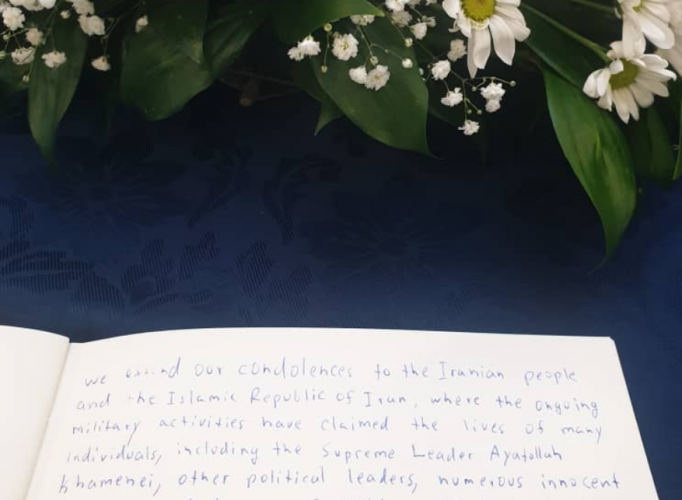 we extend our condolences to the Iranian people
and the Islamic Republic of Iran, where the ongoing
military activities have claimed the lives of many
individuals, including the Supreme Leader Ayatollah
Khamenei, other political leaders, numerous innocent